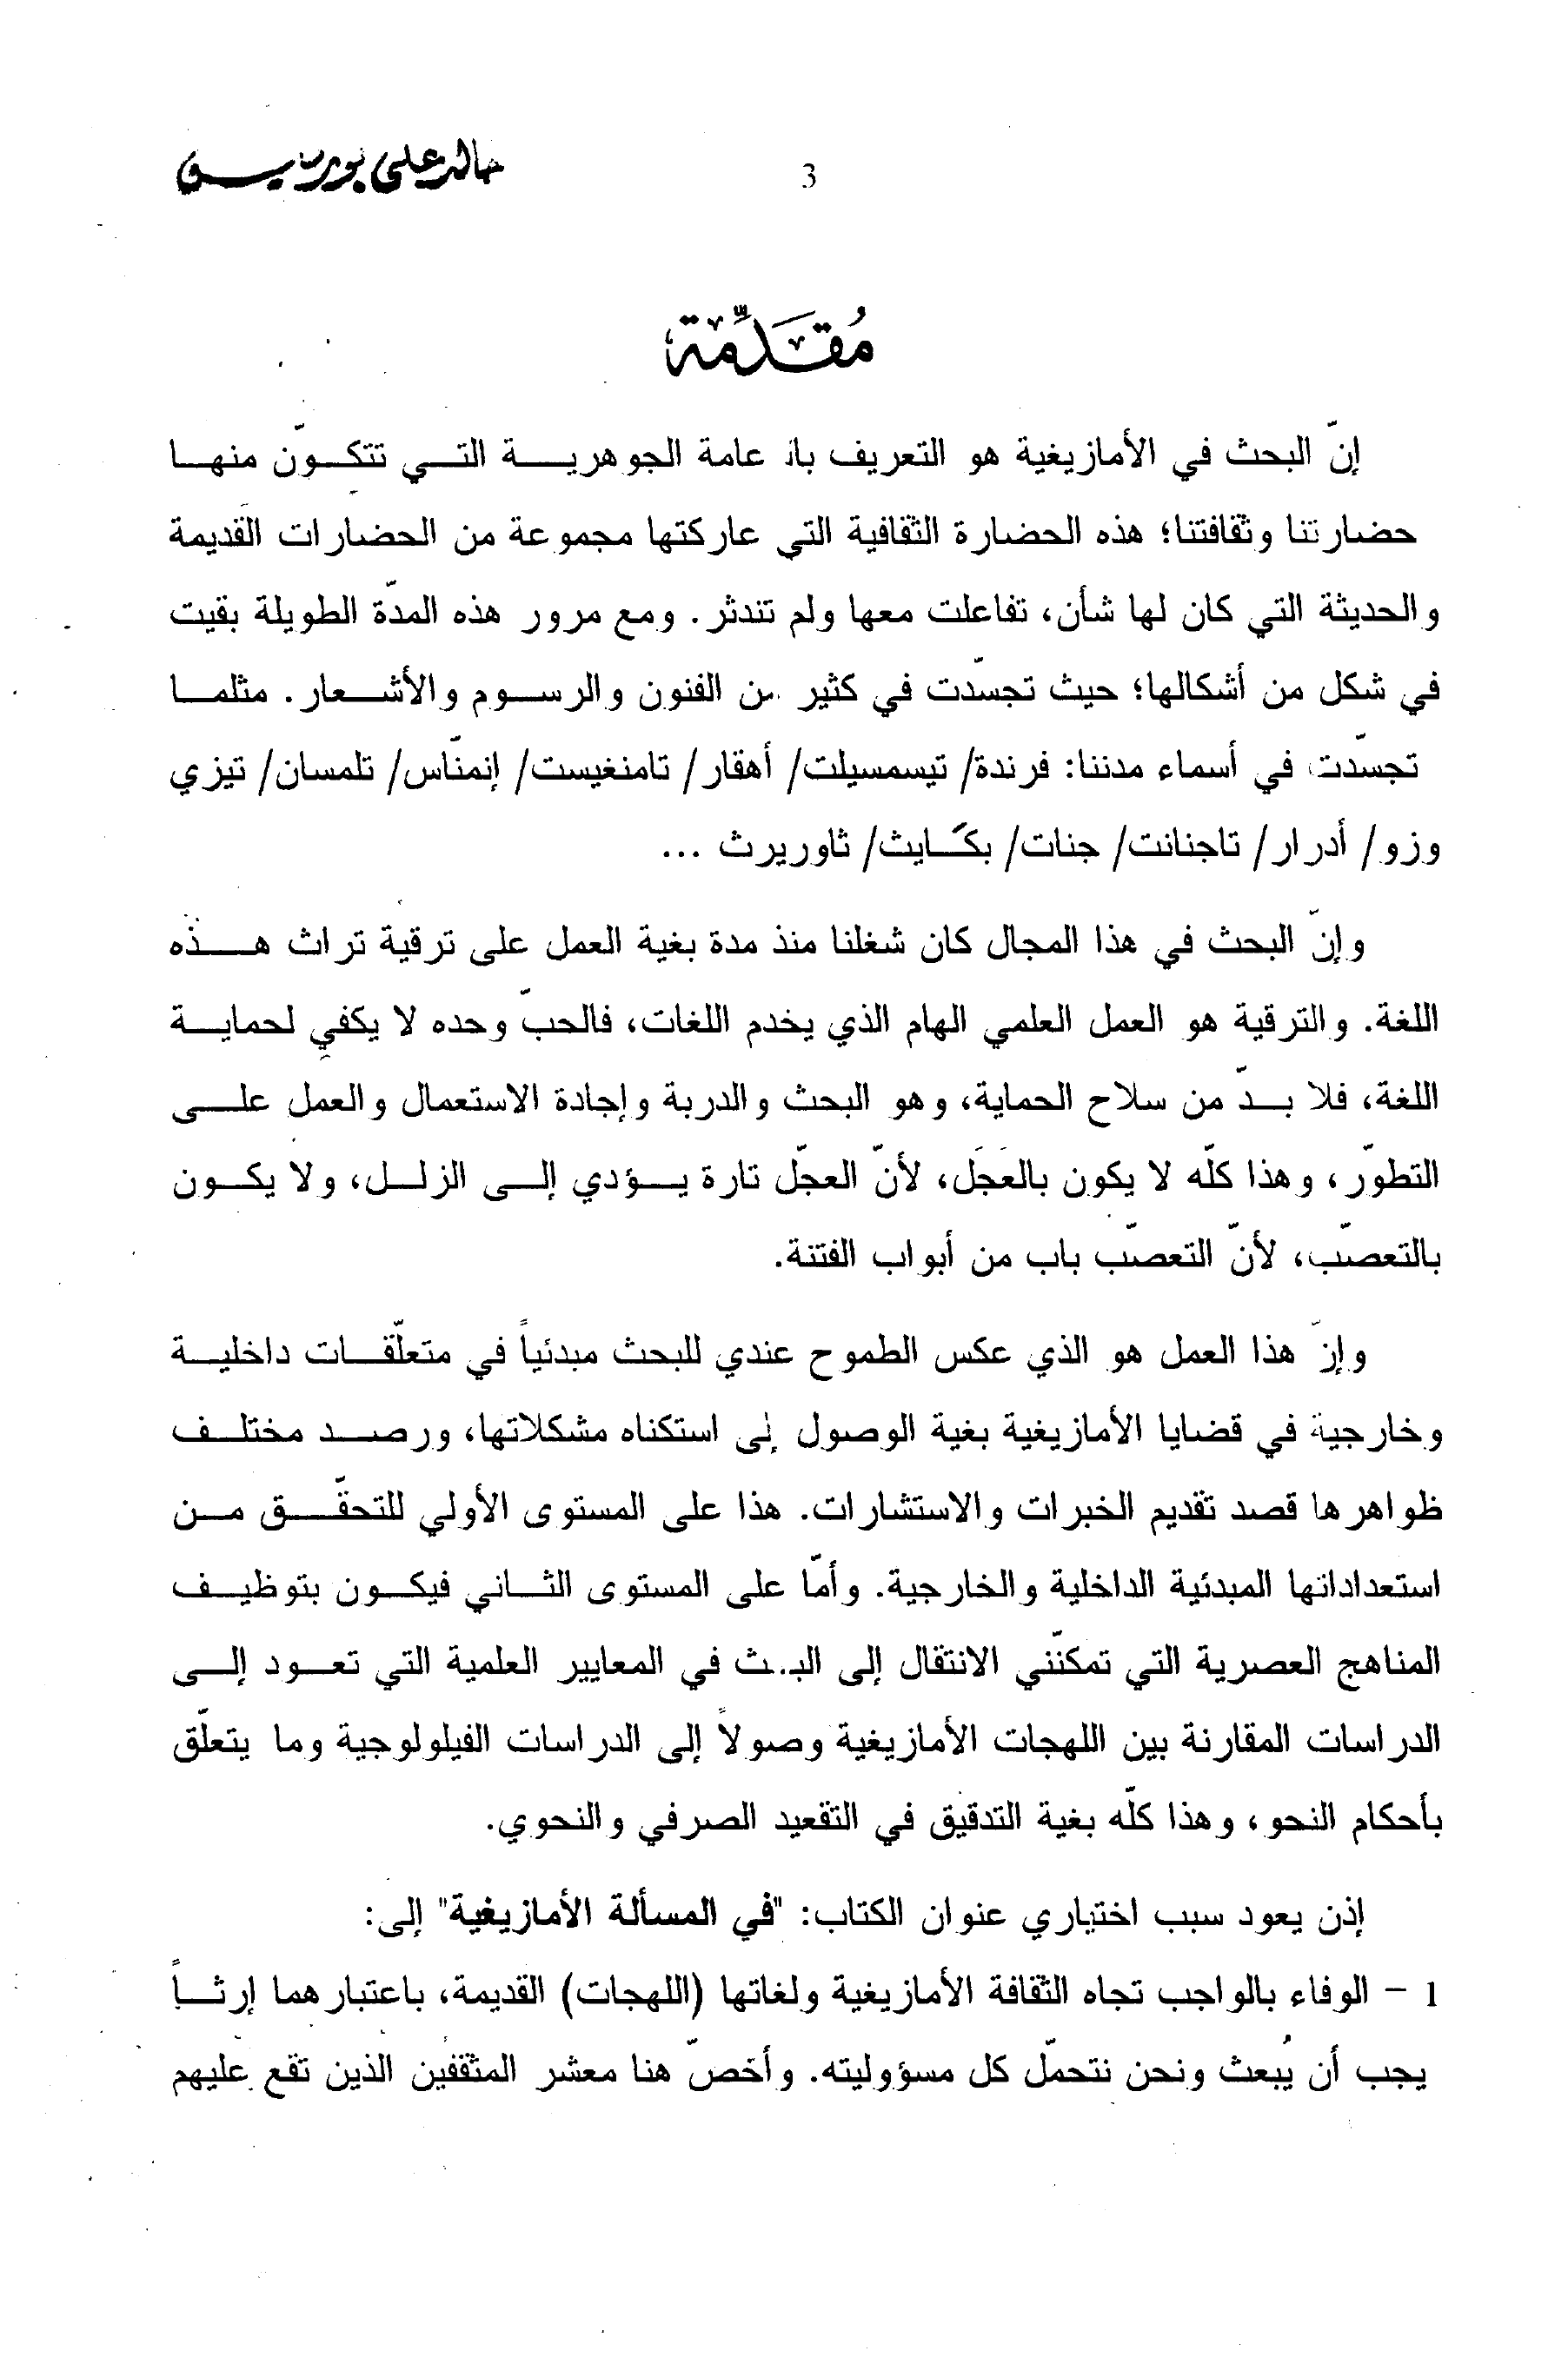 3
مُقَدِّمَة
إنّ البحث في الأمازيغية هو التعريف عامة الجوهرية التي تتكوّن منها
حضارتنا وثقافتنا؛ هذه الحضارة الثقافية التي عاركتها مجموعة من الحضارات القديمة
والحديثة التي كان لها شأن، تفاعلت معها ولم تندثر. ومع مرور هذه المدّة الطويلة بقيت
في شكل من أشكالها؛ حيث تجسّدت في كثير من الفنون والرسوم والأشعار. مثلما
تجسّدت في أسماء مدننا: فرندة/ تيسمسيلت/ أهقار/ تامنغيست/ إنمنّاس/ تلمسان/ تيزي
وزو/ أدرار/ تاجنانت/ جنات/ بكَايث/ ثاوريرث ...
وإنّ البحث في هذا المجال كان شغلنا منذ مدة بغية العمل على ترقية تراث هذه
اللغة. والترقية هو العمل العلمي الهام الذي يخدم اللغات، فالحبّ وحده لا يكفي لحماية
اللغة، فلا بدّ من سلاح الحماية، وهو البحث والدربة وإجادة الاستعمال والعمل على
التطوّر، وهذا كلّه لا يكون بالعَجَل، لأنّ العجّل تارة يؤدي إلى الزلل، ولا يكون
بالتعصّب، لأنّ التعصّب باب من أبواب الفتنة.
وإنّ هذا العمل هو الذي عكس الطموح عندي للبحث مبدئياً في متعلّقات داخلية
وخارجية في قضايا الأمازيغية بغية الوصول إلى استكناه مشكلاتها، ورصد مختلف
ظواهرها قصد تقديم الخبرات والاستشارات. هذا على المستوى الأولي للتحقّق من
استعداداتها المبدئية الداخلية والخارجية. وأمّا على المستوى الثاني فيكون بتوظيف
المناهج العصرية التي تمكنّني الانتقال إلى البحث في المعايير العلمية التي تعود إلى
الدراسات المقارنة بين اللهجات الأمازيغية وصولاً إلى الدراسات الفيلولوجية وما يتعلّق
بأحكام النحو، وهذا كلّه بغية التدقيق في التقعيد الصرفي والنحوي.
إذن يعود سبب اختياري عنوان الكتاب: "في المسألة الأمازيغية" إلى:
1 - الوفاء بالواجب تجاه الثقافة الأمازيغية ولغاتها (اللهجات) القديمة، باعتبارهما إرثاً
يجب أن يُبعث ونحن نتحمّل كل مسؤوليته. وأخصّ هنا معشر المثقفين الذين تقع عليهم